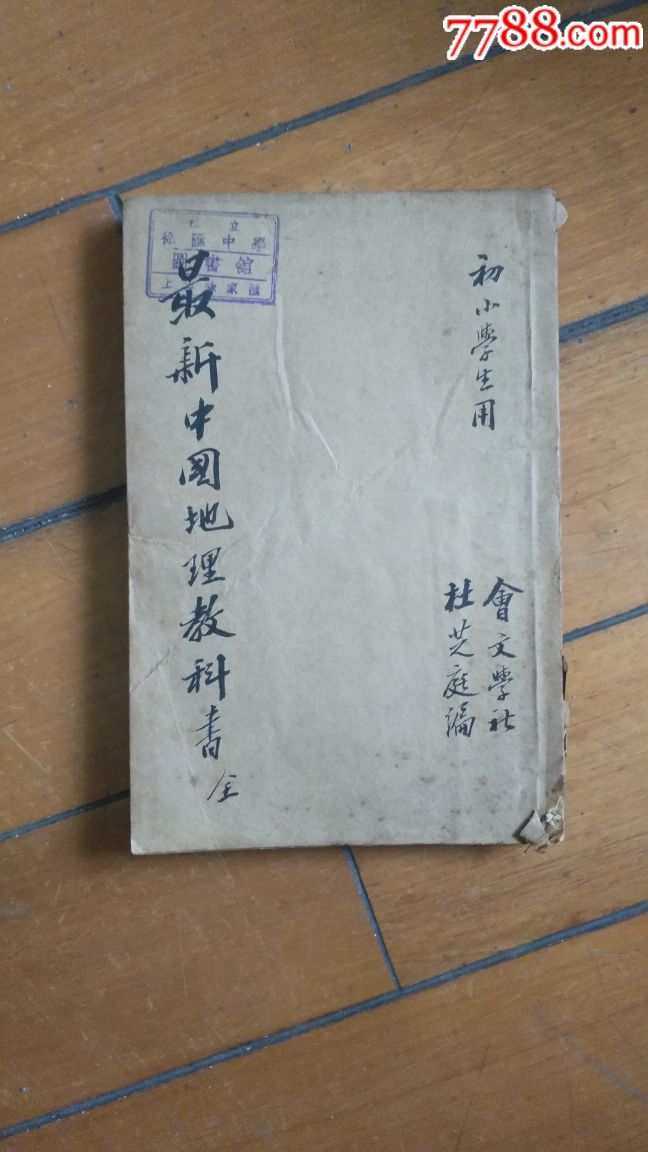 7788.com
立
徐匯中學
圖書館
上海徐家滙
初小學生用
會文學社
杜芝庭編
最新中國地理教科書 全